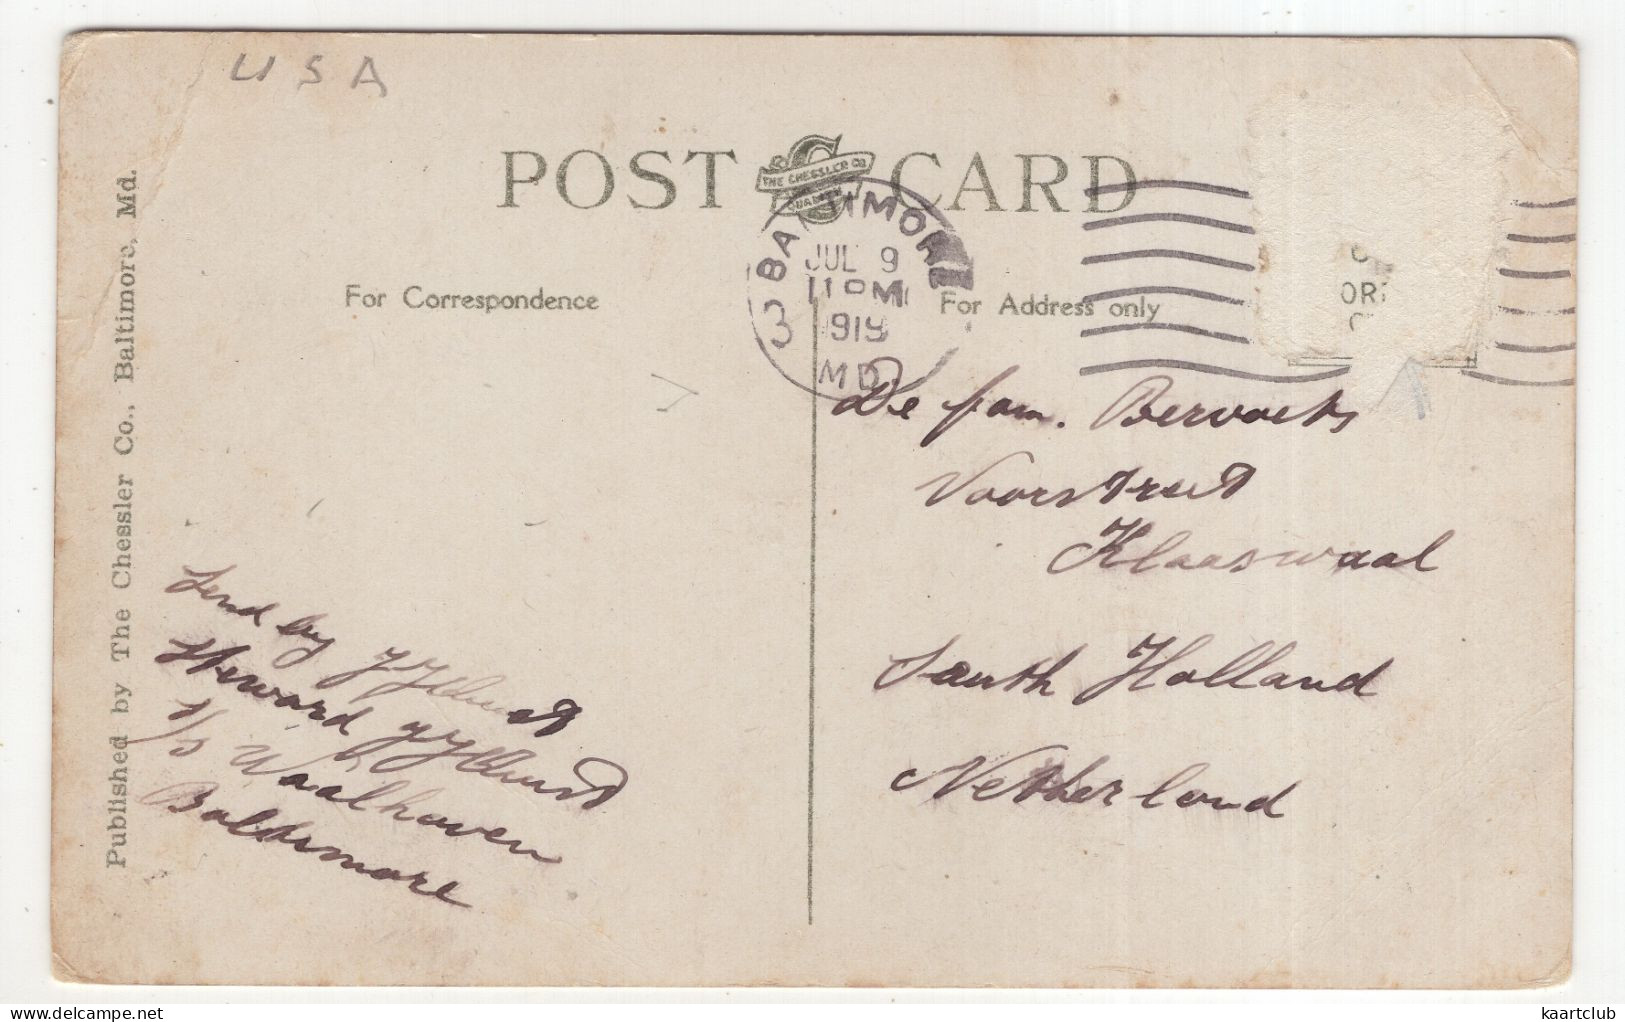 USA
POST CARD
THE CHESSLER CO
QUALITY
BALTIMORE
JUL 9
11 PM
1919
MD.
For Correspondence
For Address only
Published by The Chessler Co., Baltimore, Md.
De fam. Bervoets
Voorstreet
Klaaswaal
South Holland
Netherland
Send by
Steward
S/S Waalhaven
Baltsmore
kaartclub